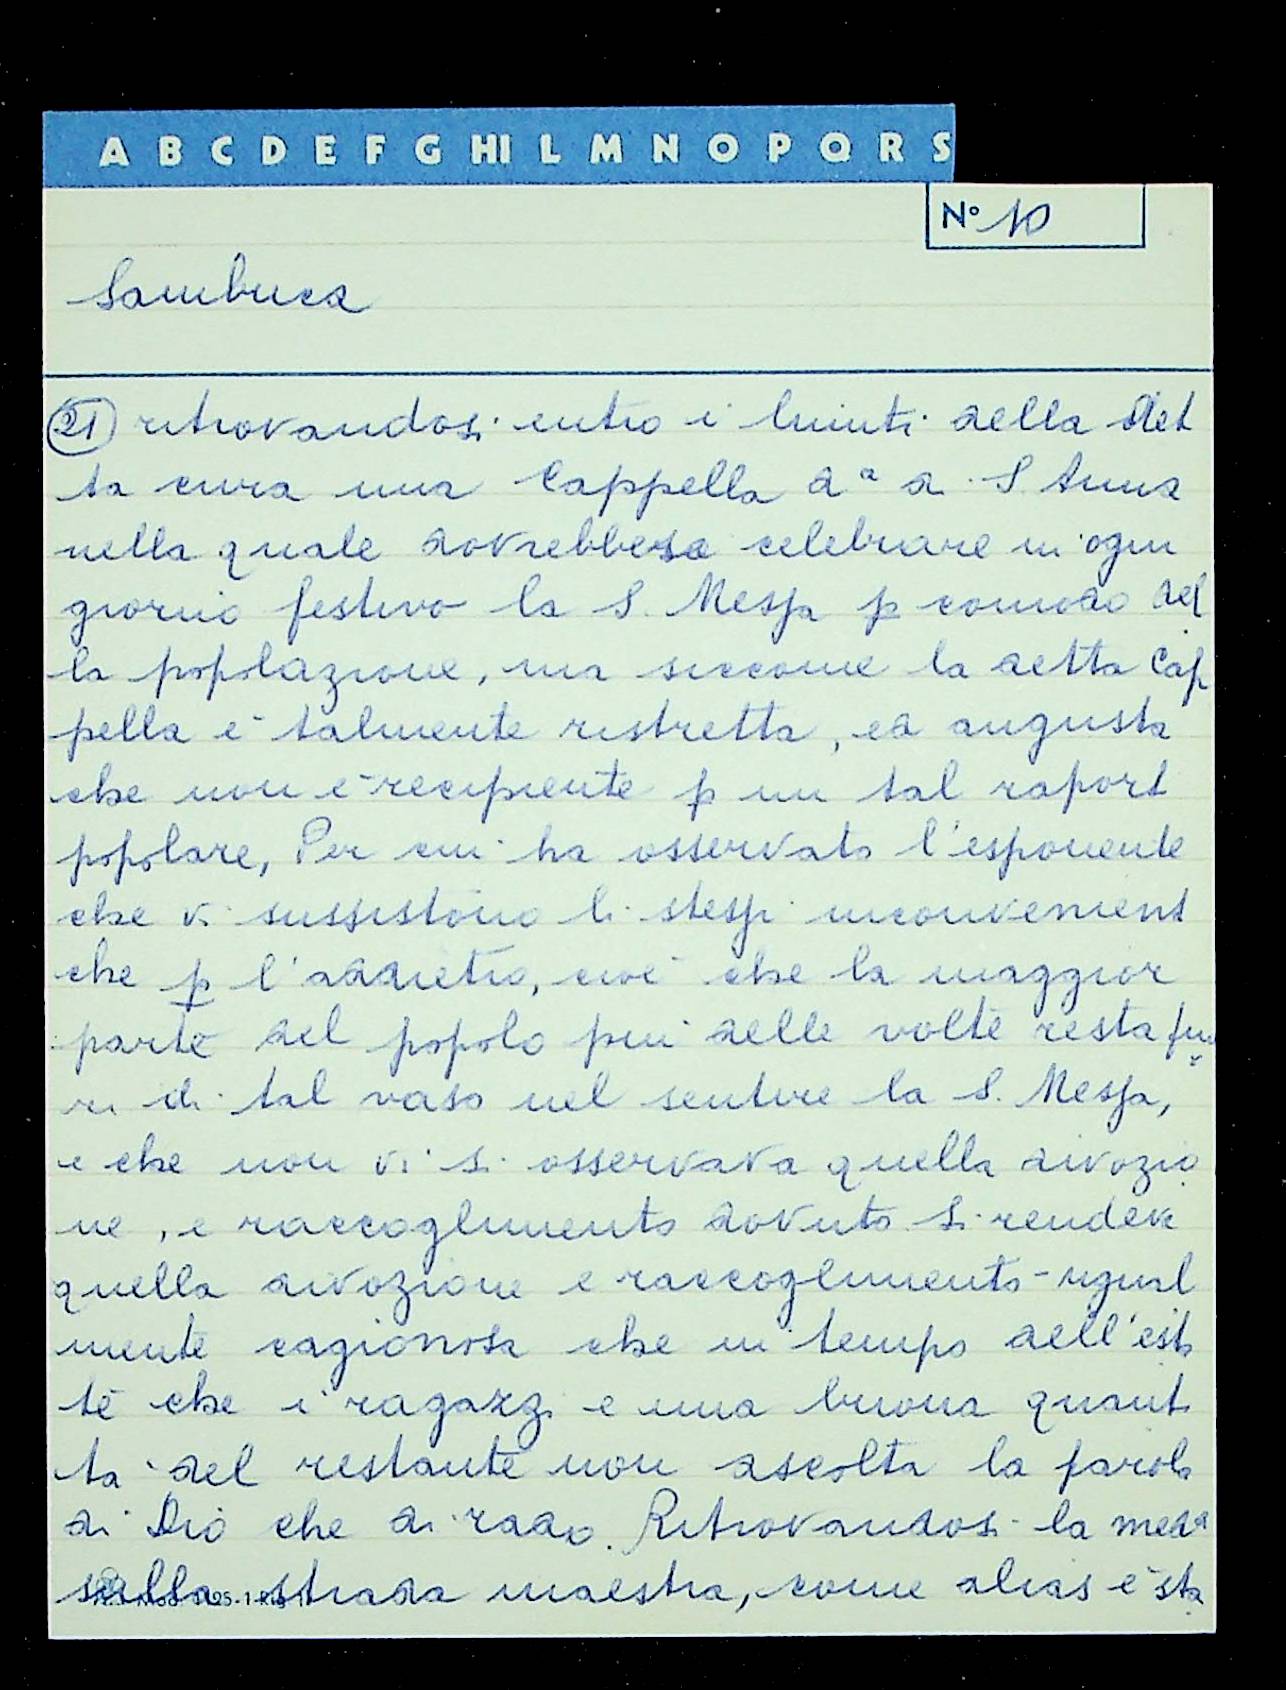 A B C D E F G HI L M N O P Q R S
N° 10
Sambuca
21 ritrovandosi entro i limiti della det
ta cura una Cappella da a S. Anna
nella quale dovrebbesi celebrare in ogni
giorno festivo la S. Messa p comodo del
la popolazione, ma siccome la detta Cap
pella è talmente ristretta, ed angusta
che non è recipiente p un tal raport
popolare, Per cui ha osservato l'esponente
che vi sussistono li stessi inconvenient
che p l'addietro, cioè che la maggior
parte del popolo più delle volte resta fuo
ri di tal vaso nel sentire la S. Messa,
e che non vi si osservava quella divozio
ne, e raccoglimento dovuto si rendeva
quella divozione e raccoglimento ugual
mente cagionosa che in tempo dell'esta
te che i ragazzi e una buona quanti
tà del restante non ascolta la parola
di Dio che di rado. Ritrovandosi la meda
sulla strada maestra, come alias è sta